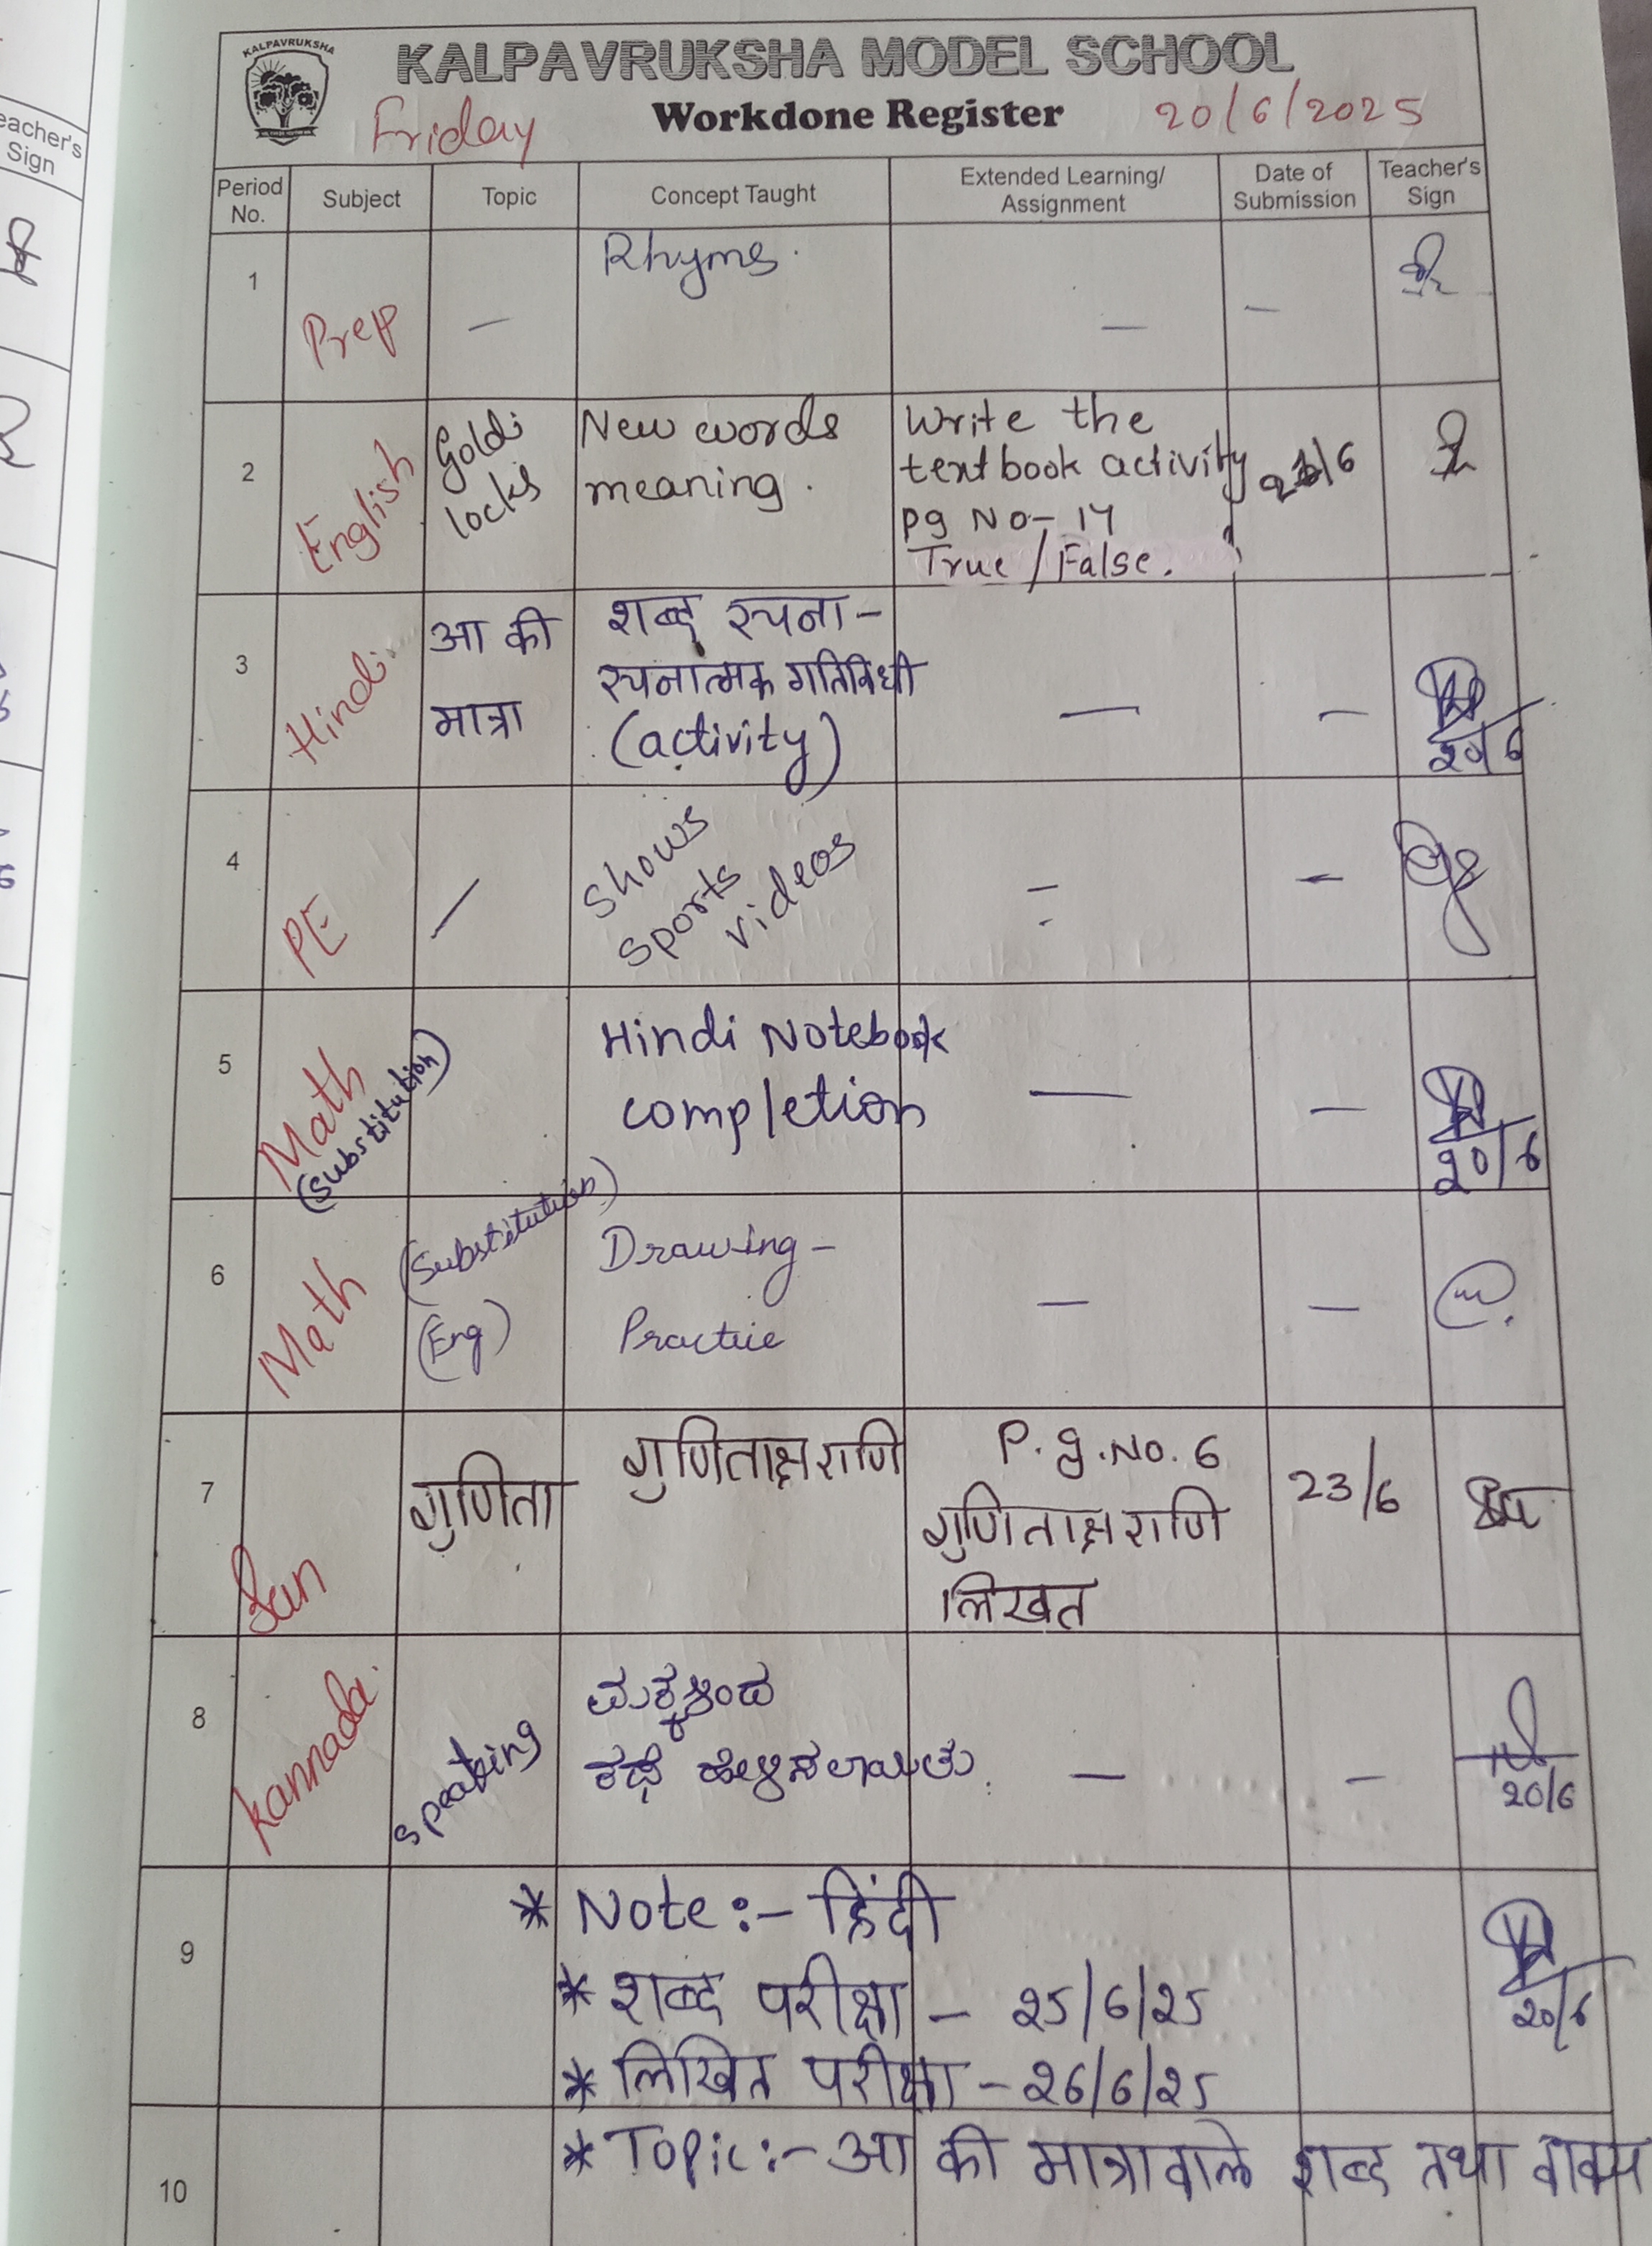 eacher's
Sign
KALPAVRUKSHA
KALPAVRUKSHA MODEL SCHOOL
Friday
Workdone Register
20/6/2025
Period No.
Subject
Topic
Concept Taught
Extended Learning/
Assignment
Date of
Submission
Teacher's
Sign
1
Prep
—
Rhyms.
—
—
2
English
Goldi
locks
New words
meaning.
Write the
textbook activity
pg No- 14
True/False.
3
Hindi.
आ की
मात्रा
शब्द रचना -
रचनात्मक गतिविधी
(activity)
—
—
20/6
4
PE
—
shows
sports
videos
—
—
5
Math
(substitution)
Hindi Notebook
completion
—
—
20/6
6
Math
(Substitution)
(Eng)
Drawing -
Practice
—
—
7
San
गुणिता
गुणिताक्षराणि
P.g.No. 6
गुणिताक्षराणि
लिखत
23/6
8
kannada.
speaking
ಮಕ್ಕಳಿಂದ
ಕಥೆ ಹೇಳಿಸಲಾಯಿತು.
—
—
20/6
9
* Note :- हिंदी
* शब्द परीक्षा - 25/6/25
* लिखित परीक्षा - 26/6/25
20/6
10
* Topic :- आ की मात्रावाले शब्द तथा वाक्य